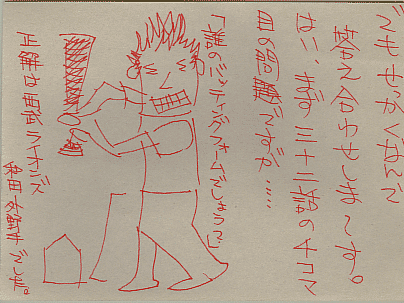 でもせっかくなんで
答え合わせしま～す。
はい、まず三十二話の4コマ
目の問題ですが……
「誰のバッティングフォームでしょう？」
正解は西武ライオンズ
和田外野手でした。